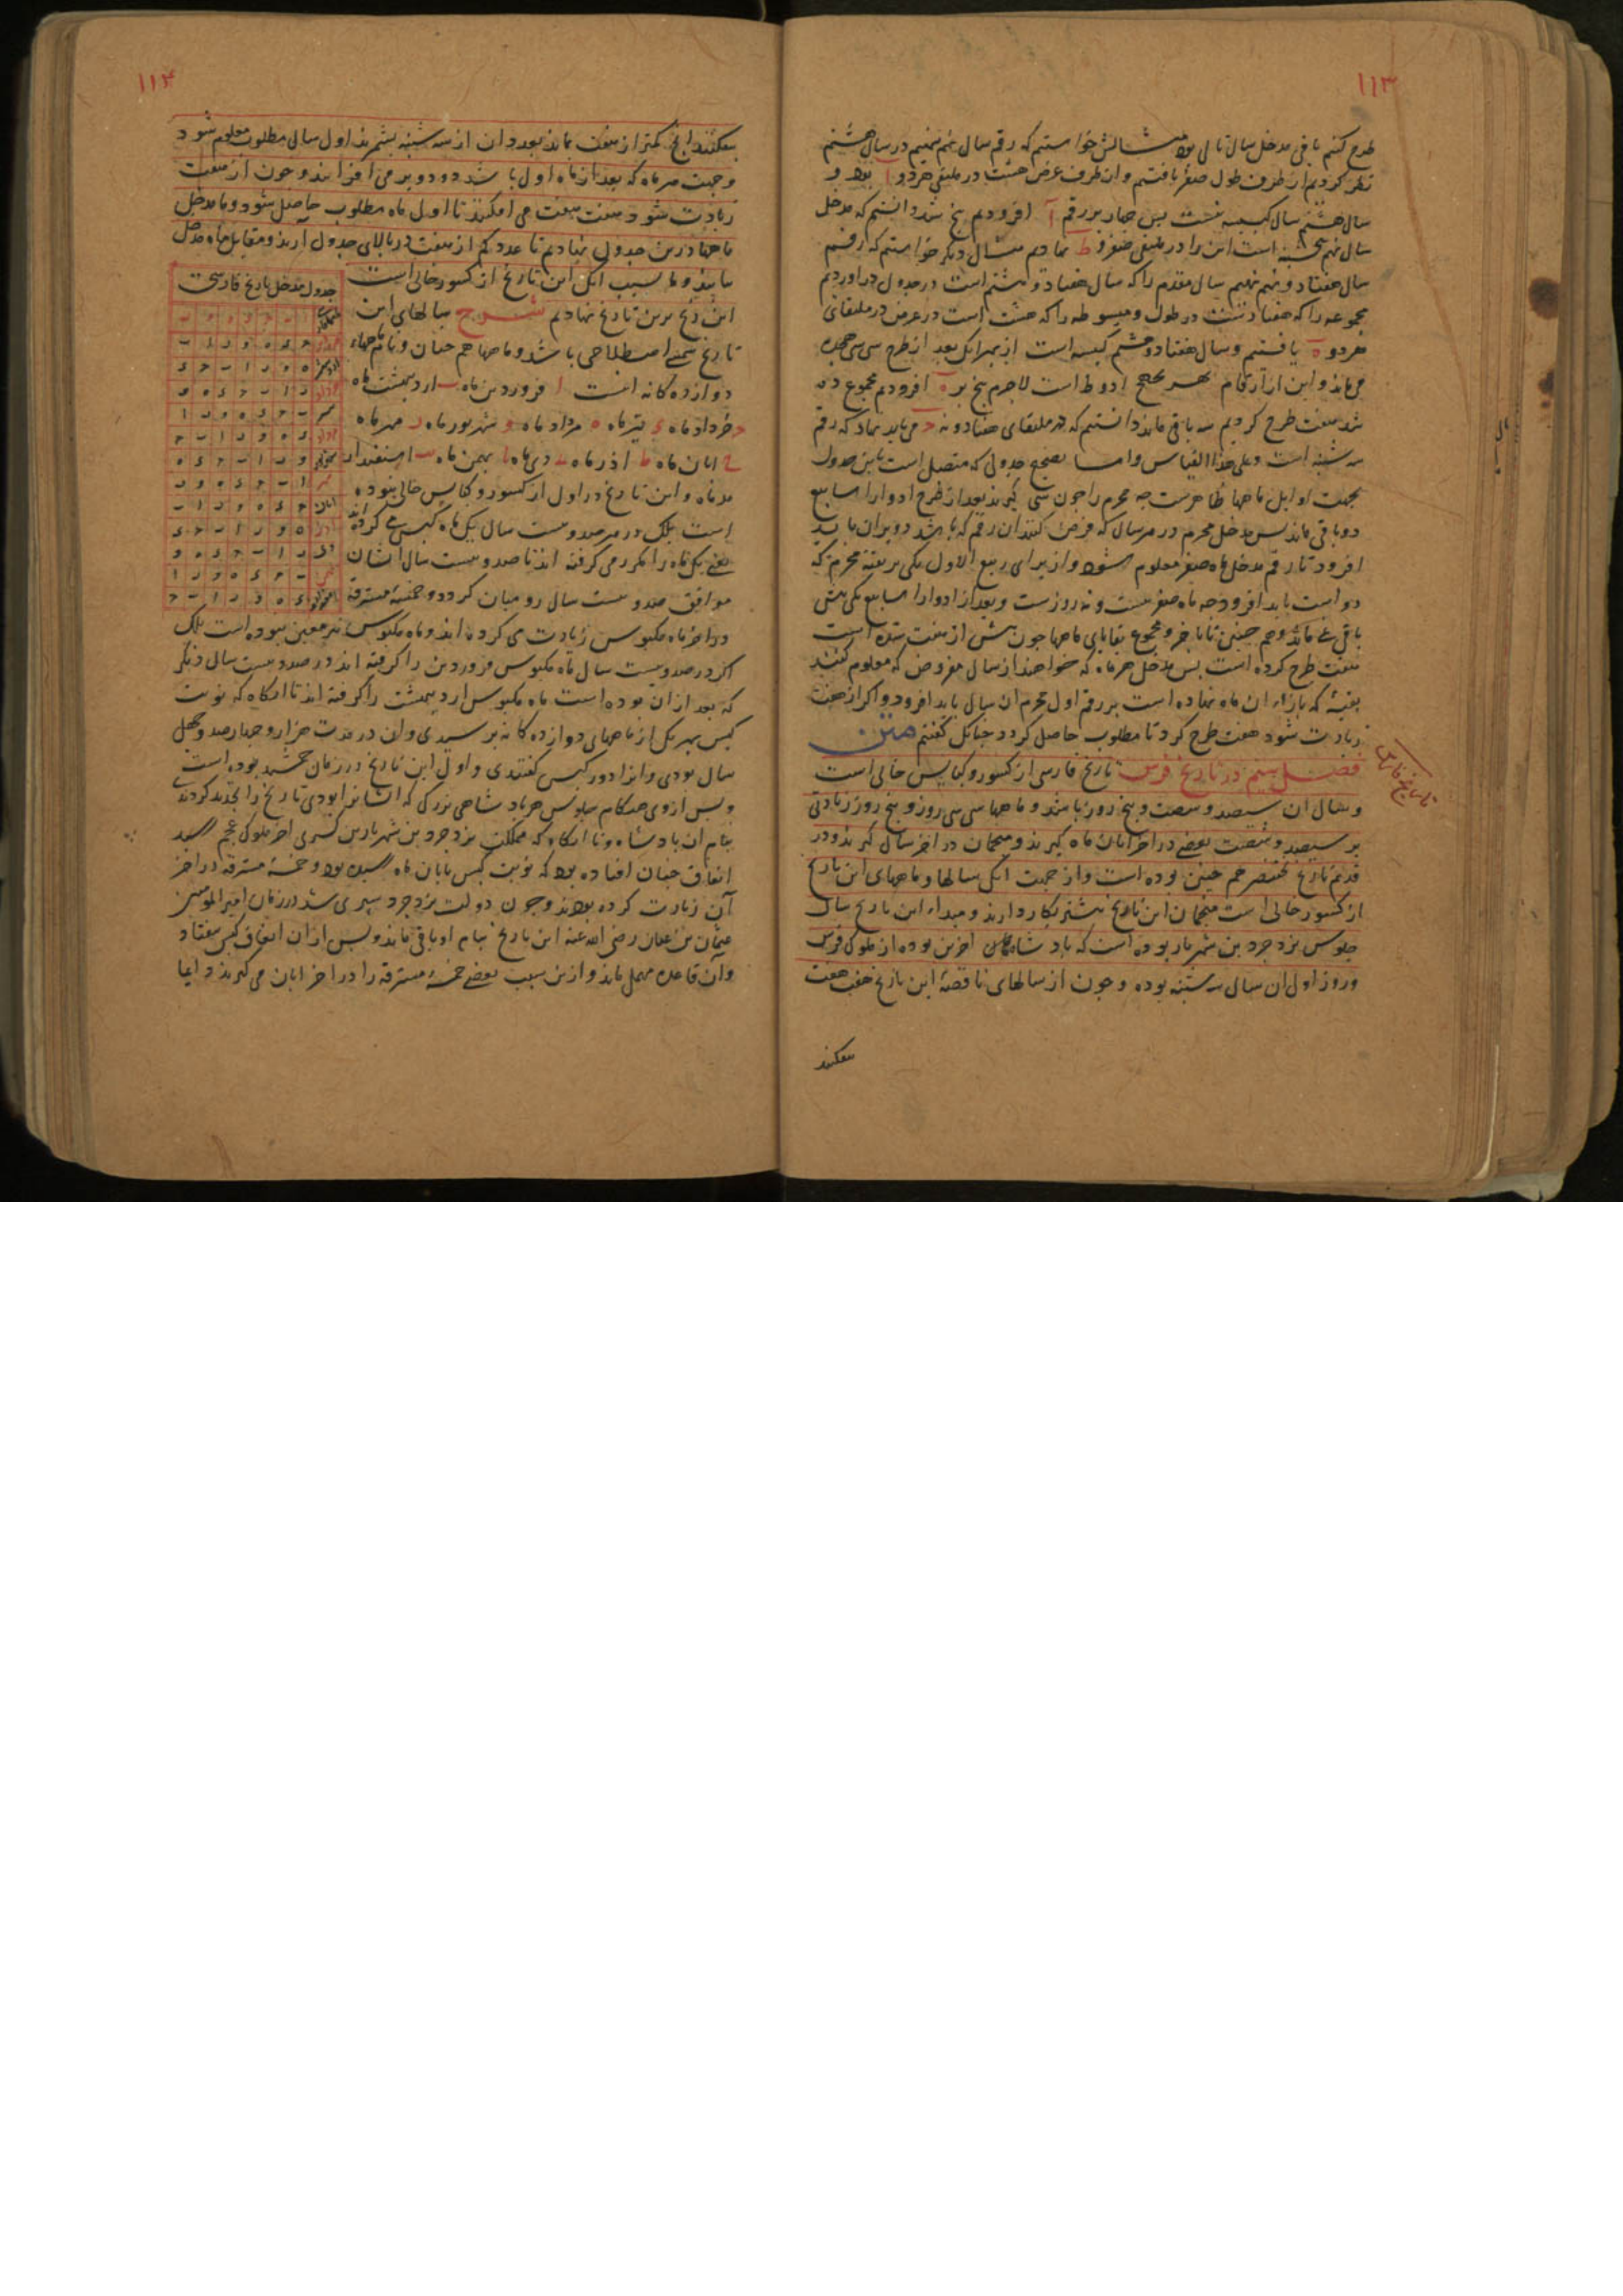 ۱۱۳
طرح کنیم باقی مدخل سال تالی بود مثالش خواستیم که رقم سال نهم نهیم در سال هشتم
نظر کردیم از طرف طول صفر یافتیم و از طرف عرض هشت در ملتقی هر دو آ بود و
سال هشتم سال کبیسه نیست پس چهار بر رقم آ افزودیم پنج شد دانستیم که مدخل
سال نهم پنجشنبه است این را در ملتقی صفر و ط نهادیم مثال دیگر خواستیم که رقم
سال هفتاد و نهم نهیم سال مقدم را که سال هفتاد و هشتم است در جدول در آوردیم
مجموعه را که هفتاد است در طول و مبسوطه را که هشت است در عرض در ملتقای
هر دو ه یافتیم و سال هفتاد و هشتم کبیسه است از بهر آنک بعد از طرح سی سی هجده
می ماند و این از ارقام بهزیجح ادوط است لاجرم پنج بر ه افزودیم مجموع ده
شد هفت طرح کردیم سه باقی ماند دانستیم که در ملتقای هفتاد و نه ج می باید نهاد که رقم
سه شنبه است و علی هذا القیاس و اما تصحیح جدولی که متصل است باین جدول
بجهت اوایل ماهها ظاهرست چه محرم را چون سی گیرند بعد از طرح ادوار اسابیع
دو باقی ماند پس مدخل محرم در هر سال که فرض کنند آن رقم که باشد دو بر آن باید
افزود تا رقم مدخل ماه صفر معلوم شود و از برای ربیع الاول یکی بر بقیه محرم که
دو است باید افزود چه ماه صفر بیست و نه روزست و بعد از ادوار اسابیع یکی بیش
باقی نمی ماند و هم چنین تا بآخر و مجموع بقایای ماهها چون بیش از هفت شده است
هفت طرح کرده است پس مدخل هر ماه که خواهند از سال مفروض که معلوم کنند
بقیه که بازاء آن ماه نهاده است بر رقم اول محرم آن سال باید افزود و اگر از هفت
زیادت شود هفت طرح کرد تا مطلوب حاصل گردد چنانک گفتیم متن
تاریخ فارسی
فصل پنجم در تاریخ فرس تاریخ فارسی از کسور و کبایس خالی است
و سال آن سیصد و شصت و پنج روز باشد و ماهها سی سی روز و پنج روز زیادتی
بر سیصد و شصت بعضی در آخر آبان ماه گیرند و منجمان در آخر سال گیرند و در
قدیم تاریخ مختصر هم چنین بوده است و از جهت آنک سالها و ماههای این تاریخ
از کسور خالی است منجمان این تاریخ بیشتر بکار دارند و مبداء این تاریخ سال
جلوس یزدجرد بن شهریار بوده است که پادشاه آخرین بوده از ملوک فرس
و روز اول آن سال سه شنبه بوده و چون از سالهای ناقصه این تاریخ هفت هفت
بیفکنند
۱۱۴
بیفکنند آنچ کمتر از هفت بماند بعدد آن از سه شنبه بشمرند اول سال مطلوب معلوم شود
و جهت هر ماه که بعد از ماه اول باشد دو دو بر می افزایند و چون از هفت
زیادت شود هفت هفت می افکنند تا اول ماه مطلوب حاصل شود و ما مدخل
ماهها درین جدول نهادیم تا عدد کم از هفت در بالای جدول آرند و مقابل ماه مدخل
یابند و ما بسبب آنک این تاریخ از کسور خالی است
این زیج برین تاریخ نهادیم شرح سالهای این
تاریخ شمسی اصطلاحی باشد و ماهها هم چنان و نام ماههاء
دوازده گانه اینست ا فروردین ماه ب اردیبهشت ماه
ج خرداد ماه د تیر ماه ه مرداد ماه و شهریور ماه ز مهر ماه
ح آبان ماه ط آذر ماه ی دی ماه یا بهمن ماه یب اسفندار
مذ ماه و این تاریخ در اول از کسور و کبایس خالی نبوده
است بلک در هر صد و بیست سال یک ماه کبس می کرده اند
یعنی یک ماه را مکرر می گرفته اند تا صد و بیست سال ایشان
موافق صد و بیست سال رومیان گردد و خمسه مسترقه
جدول مدخل تاریخ فارسی
در آخر ماه مکبوس زیادت می کرده اند و ماه مکبوس نیز معین نبوده است بلک
اگر در صد و بیست سال ماه مکبوس فروردین را گرفته اند در صد و بیست سال دیگر
که بعد از آن بوده است ماه مکبوس اردیبهشت را گرفته اند تا آنگاه که نوبت
کبس بهر یک از ماههای دوازده گانه برسیدی و آن در مدت هزار و چهارصد و چهل
سال بودی و آنرا دور کبس گفتندی و اول این تاریخ در زمان جمشید بوده است
و پس از وی هنگام جلوس هر پادشاهی بزرگ که ایشانرا بودی تاریخ را تجدید کردندی
بنام آن پادشاه و تا آنگاه که مملکت یزدجرد بن شهریار بن کسری آخر ملوک عجم رسید
اتفاق چنان افتاده بود که نوبت کبس بآبان ماه رسیده بود و خمسه مسترقه در آخر
آن زیادت کرده بودند و چون دولت یزدجرد سپری شد در زمان امیرالمؤمنین
عثمان بن عفان رضی الله عنه این تاریخ بنام او باقی ماند و پس از آن اتفاق کبس نیفتاد
و آن قاعده مهمل ماند و ازین سبب بعضی خمسه مسترقه را در آخر آبان می گیرند و اما